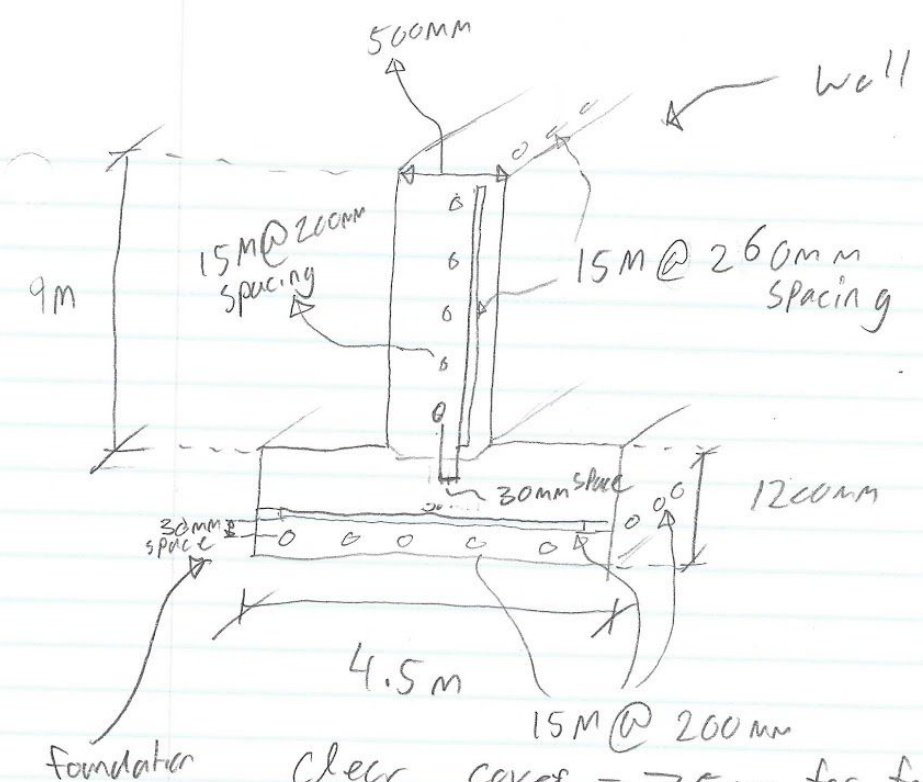 500mm
Wall
15M@200mm
spacing
15M@260mm
spacing
9M
30mm space
1200mm
30mm
space
4.5m
15M@200mm
foundation
Clear cover = 75mm for